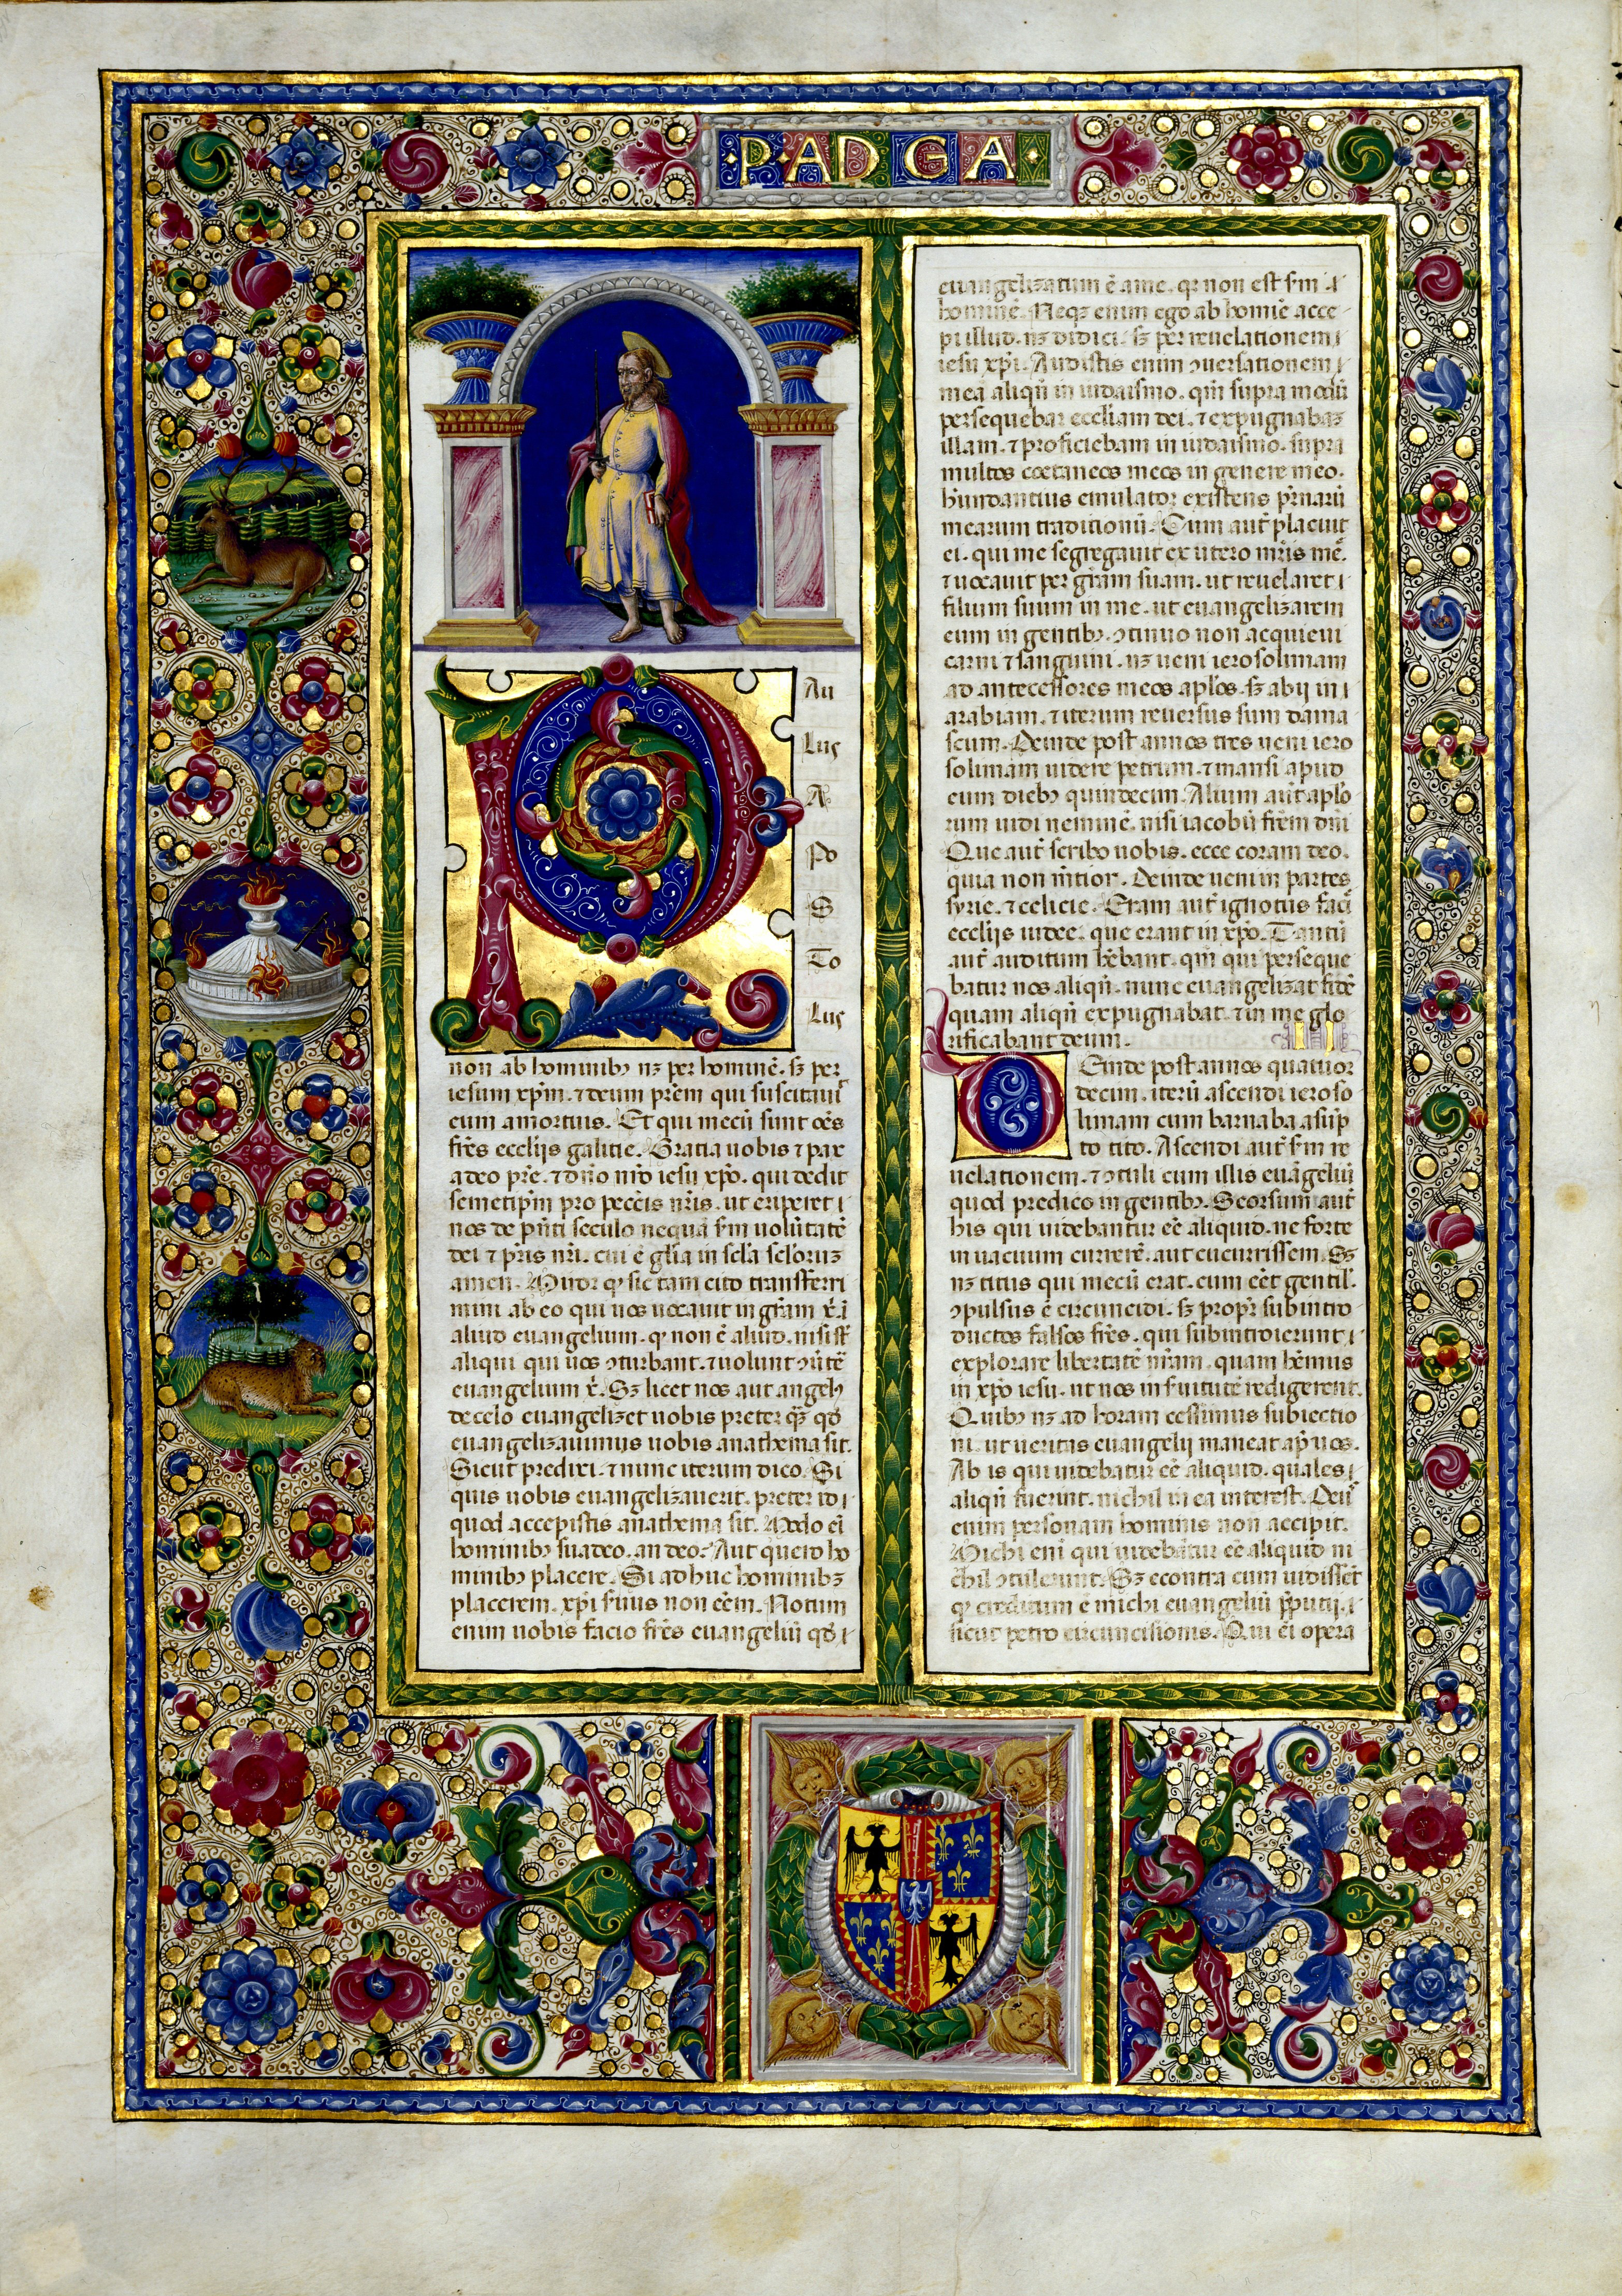 P·AD GA
Au
lus
A
Po
S
To
lus
non ab hominibꝫ nꝫ per hominē. sꝫ per
iesum xp̄m. ⁊ deum prēm qui suscitauit
eum a mortuis. Et qui mecū sunt oēs
frēs eccliis galatie. Gratia uobis ⁊ pax
a deo prē. ⁊ dn̄o nrō iesu xp̄o. qui dedit
semetip̄m pro pecc̄is nr̄is. ut eriperet
nos de pn̄ti seculo nequā s̄m uolūtatē
dei ⁊ pr̄is nr̄i. cui ē glīa in sclā scloruꝫ
amen. Miror ꝙ sic tam cito transferri
mini ab eo qui uos uocauit in grām x̄. ī
aliud euangelium. ꝙ non ē aliud. nisi st̄
aliqui qui uos ꝯturbant. ⁊ uolunt ꝯuˀtē
euangelium x̄. Sꝫ licet nos aut angelꝰ
de celo euangelizet uobis preter qꝫ qd̄
euangelizauimus uobis anathema sit.
Sicut predixi. ⁊ nunc iterum dico. Si
quis uobis euangelizauerit. preter id
quod accepistis anathema sit. Modo ei
hominibꝫ suadeo. an deo. Aut quero ho
minibꝫ placere. Si adhuc hominibꝫ
placerem. xp̄i s̄uus non eēm. Notum
enim uobis facio frēs euangeliū qd̄
euangelizatum ē a me. qꝛ non est s̄m
hominē. Neqꝫ enim ego ab homīe acce
pi illud. nꝫ didici. sꝫ per reuelationem
iesu xp̄i. Audistis enim ꝯuersationem
meā aliqn̄ in iudaismo. qm̄ supra modū
persequebar eccliam dei. ⁊ expugnabaꝫ
illam. ⁊ proficiebam in iudaismo. supra
multos coetaneos meos in genere meo.
hūndantius emulator existens pr̄naruꝫ
mearum traditionū. Cum aut̄ placuit
ei. qui me segregauit ex utero mr̄is meē.
⁊ uocauit per grām suam. ut reuelaret
filium suum in me. ut euangelizarem
eum in gentibꝫ. ꝯtinuo non acquieui
carni ⁊ sanguini. nꝫ ueni ierosolimam
ad antecessores meos aplōs. sꝫ abij in
arabiam. ⁊ iterum reuersus sum dama
scum. Deinde post annos tres ueni iero
solimam uidere petrum. ⁊ mansi apud
eum diebꝫ quindecim. Alium aut̄ aplō
rum uidi neminē. nisi iacobū frēm dn̄i
Que aut̄ scribo uobis. ecce coram deo.
quia non mētior. Deinde ueni in partes
syrie. ⁊ celicie. Eram aut̄ ignotus faciē
eccliis iudee. que erant in xp̄o. Tantū
aut̄ auditum hēbant. qm̄ qui perseque
batur nos aliqn̄. nunc euangelizat fidē
quam aliqn̄ expugnabat. ⁊ in me glo
rificabant deum. II
Deinde post annos quatuor
decim. iterū ascendi ieroso
limam cum barnaba asup
to tito. Ascendi aut̄ s̄m re
uelationem. ⁊ ꝯtuli cum illis euāgeliū
quod predico in gentibꝫ. Seorsum aut̄
his qui uidebantur eē aliquid. ne forte
in uacuum currerē. aut cucurrissem. Sꝫ
nꝫ titus qui mecū erat. cum eēt gentil'.
ꝯpulsus ē circuncidi. sꝫ propt̄ subintro
ductos falsos frēs. qui subintroierunt
explorare libertatē nr̄am. quam hēmus
in xp̄o iesu. ut nos in s̄uitutē redigerent.
Quibꝫ nꝫ ad horam cessimus subiectio
ni. ut ueritas euangelij maneat ap̄ uos.
Ab is qui uidebatur eē aliquid. quales
aliqn̄ fuerint. nichil mea interest. Deus
enim personam hominis non accipit.
Michi eni qui uidebātur eē aliquid ni
chil ꝯtulerunt. Sꝫ econtra cum uidissēt
ꝙ creditum ē michi euangeliū p̄putij.
sicut petro circuncisionis. Qui ei opera